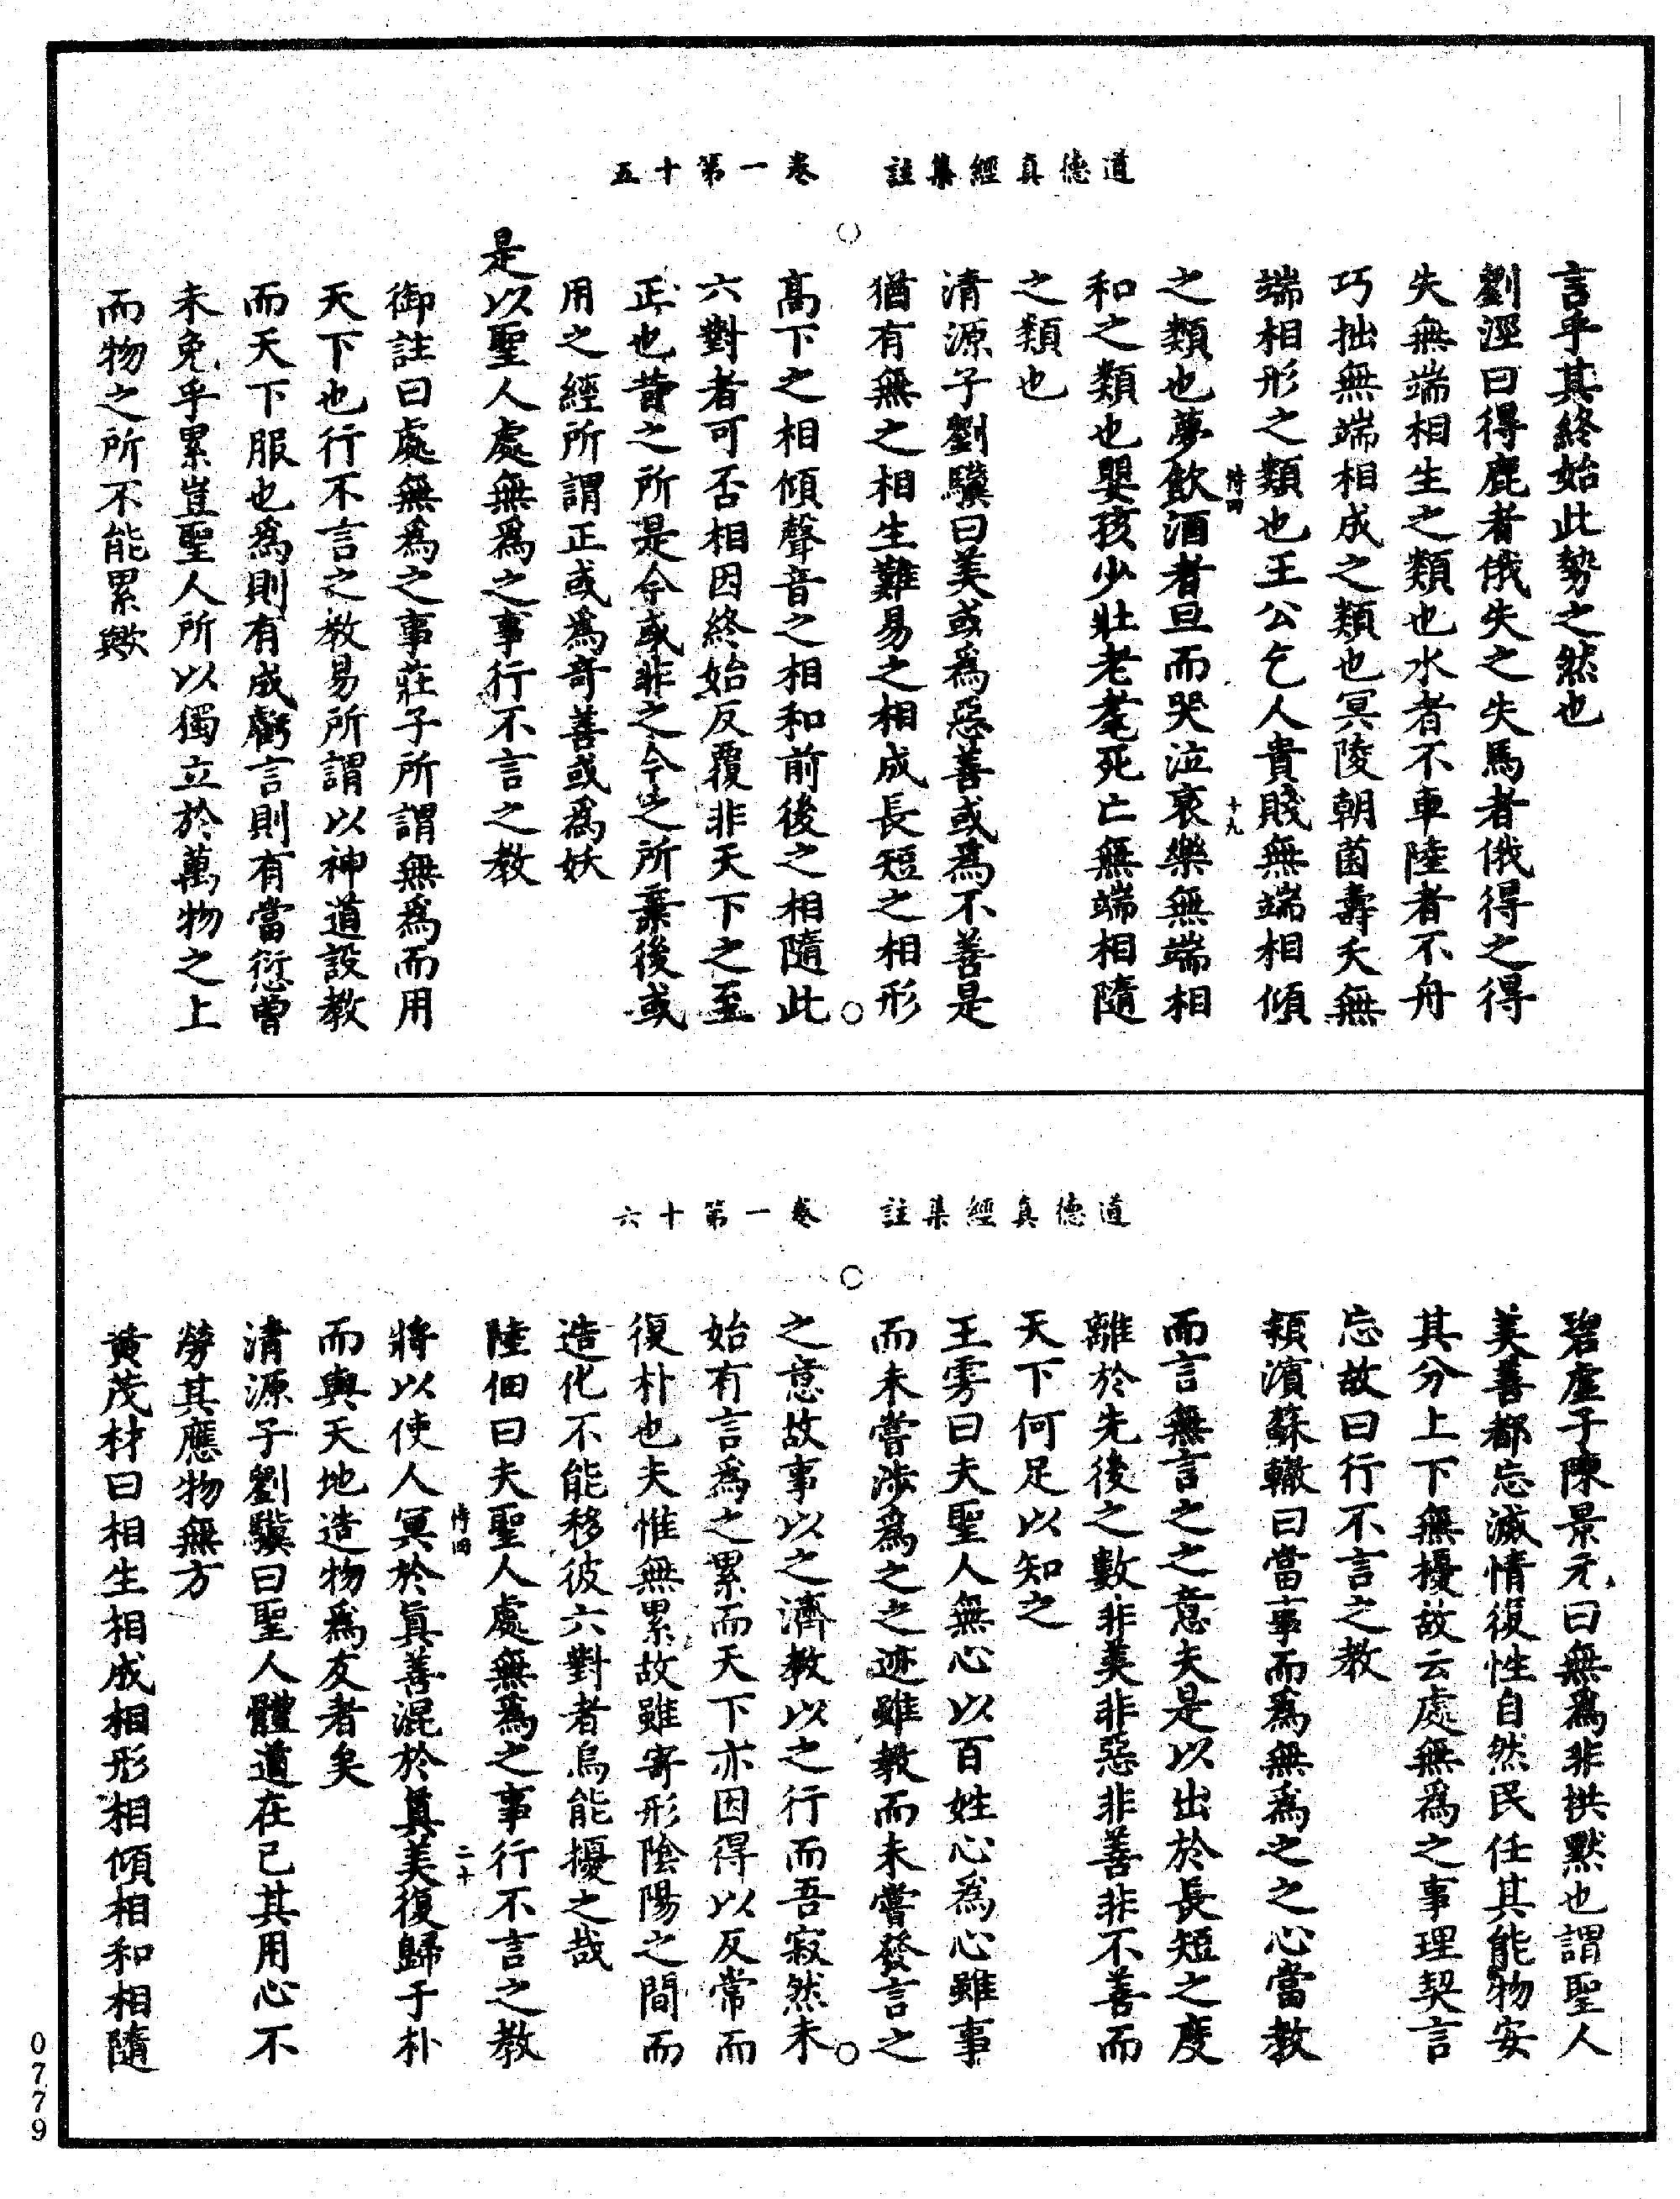 道德真經集註　卷一第十五
言乎其終始此勢之然也
劉涇曰得鹿者俄失之失馬者俄得之得
失無端相生之類也水者不車陸者不舟
巧拙無端相成之類也冥陵朝菌壽夭無
端相形之類也王公乞人貴賤無端相傾
恃四　十九
之類也夢飲酒者旦而哭泣哀樂無端相
和之類也嬰孩少壯老耄死亡無端相隨
之類也
清源子劉驥曰美或為惡善或為不善是
猶有無之相生難易之相成長短之相形
高下之相傾聲音之相和前後之相隨此
六對者可否相因終始反覆非天下之至
正也昔之所是今或非之今之所棄後或
用之經所謂正或為奇善或為妖
是以聖人處無為之事行不言之教
御註曰處無為之事莊子所謂無為而用
天下也行不言之教易所謂以神道設教
而天下服也為則有成虧言則有當愆曾
未免乎累豈聖人所以獨立於萬物之上
而物之所不能累歟
道德真經集註　卷一第十六
碧虛子陳景元曰無為非拱默也謂聖人
美善都忘滅情復性自然民任其能物安
其分上下無擾故云處無為之事理契言
忘故曰行不言之教
潁濱蘇轍曰當事而為無為之之心當教
而言無言之之意夫是以出於長短之度
離於先後之數非美非惡非善非不善而
天下何足以知之
王雱曰夫聖人無心以百姓心為心雖事
而未嘗涉為之之迹雖教而未嘗發言之
之意故事以之濟教以之行而吾寂然未
始有言為之累而天下亦因得以反常而
復朴也夫惟無累故雖寄形陰陽之間而
造化不能移彼六對者烏能擾之哉
陸佃曰夫聖人處無為之事行不言之教
恃四　二十
將以使人冥於真善混於真美復歸于朴
而與天地造物為友者矣
清源子劉驥曰聖人體道在己其用心不
勞其應物無方
黃茂材曰相生相成相形相傾相和相隨
0779